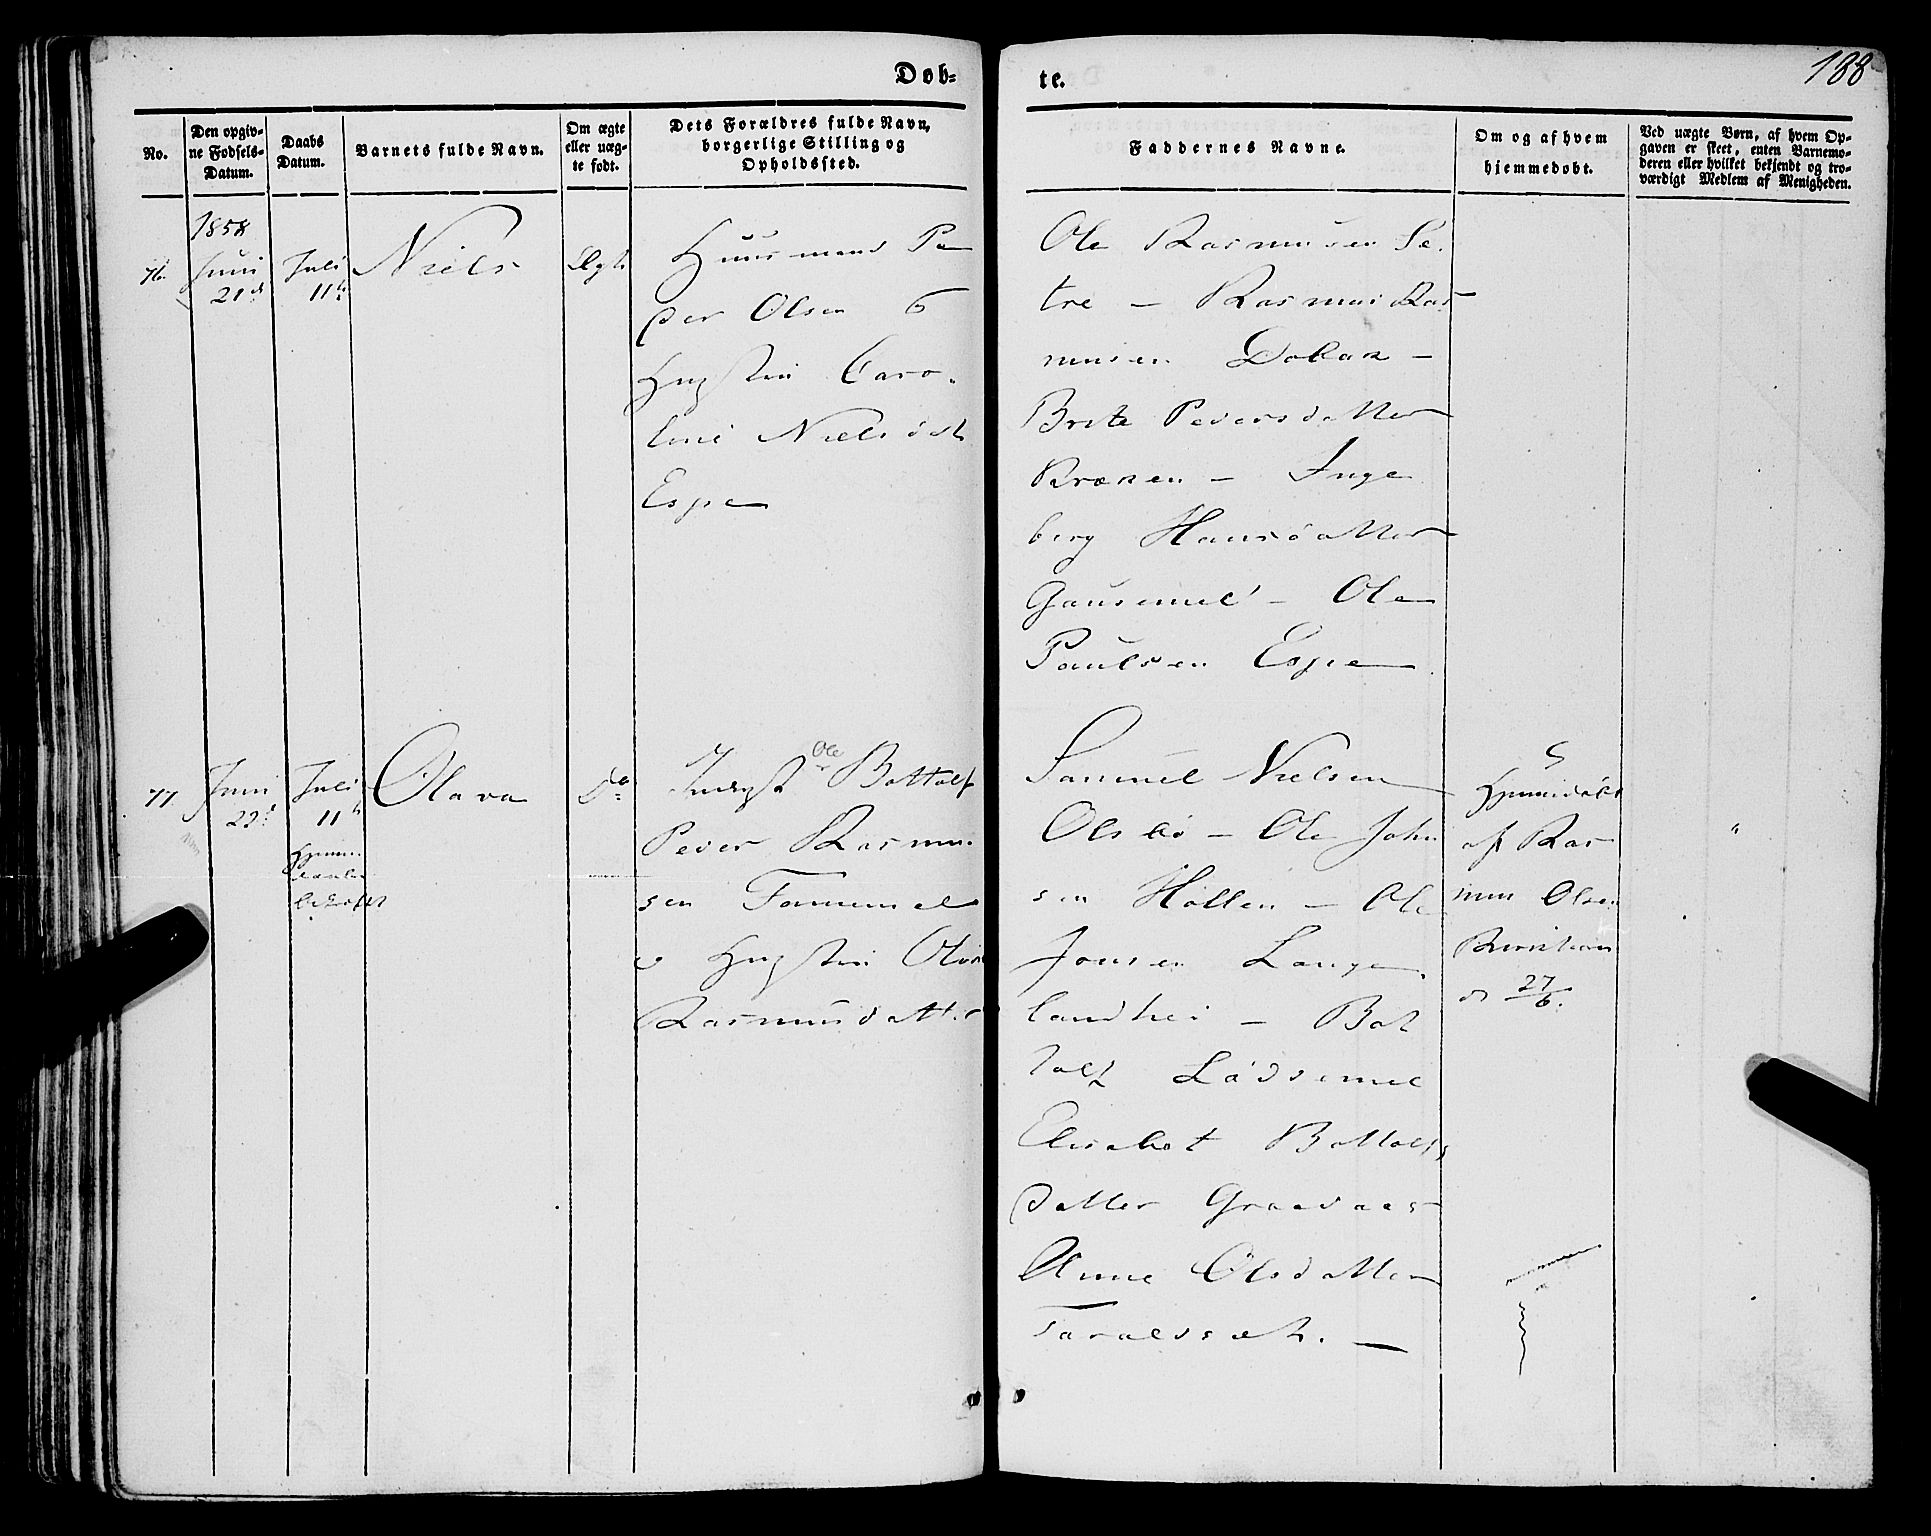 Døb-
te.
188
No.
Den opgiv-
ne Fødsels-
Datum.
Daabs
Datum.
Barnets fulde Navn.
Om ægte
eller uæg-
te født.
Dets Forældres fulde Navn,
borgerlige Stilling og
Opholdssted.
Faddernes Navne.
Om og af hvem
hjemmedøbt.
Ved uægte Børn, af hvem Op-
gaven er skeet, enten Barnemo-
deren eller hvilket bekjendt og tro-
værdigt Medlem af Menigheden.
1858
76.
Juni
21
Juli
11
Niels
Ægte
Huusmand Pe
der Olsen
Hustru Caro-
line Nielsdtr
Espe
Ole Rasmusen Se
tre - Rasmus Ras
musen
Brite Pedersdatter
- Inge
berg Hansdatter
Gausemel - Ole
Paulsen Espe
77
Juni
22
Juli
11
Hjemme
daaben
bekræftet
Olava
Do
Inderst Ole Bottolf
Peder Rasmu
sen
Hustru
Rasmusdatter
Samuel Nielsen
- Ole John
sen - Ole
Jonsen Lange
landhei - Bot
tolf
Elisabet Bottolfs
datter
Anne Olsdatter
Taraldset. -
Hjemmedøbt
af Ras
mus Olsen
27/6.
"